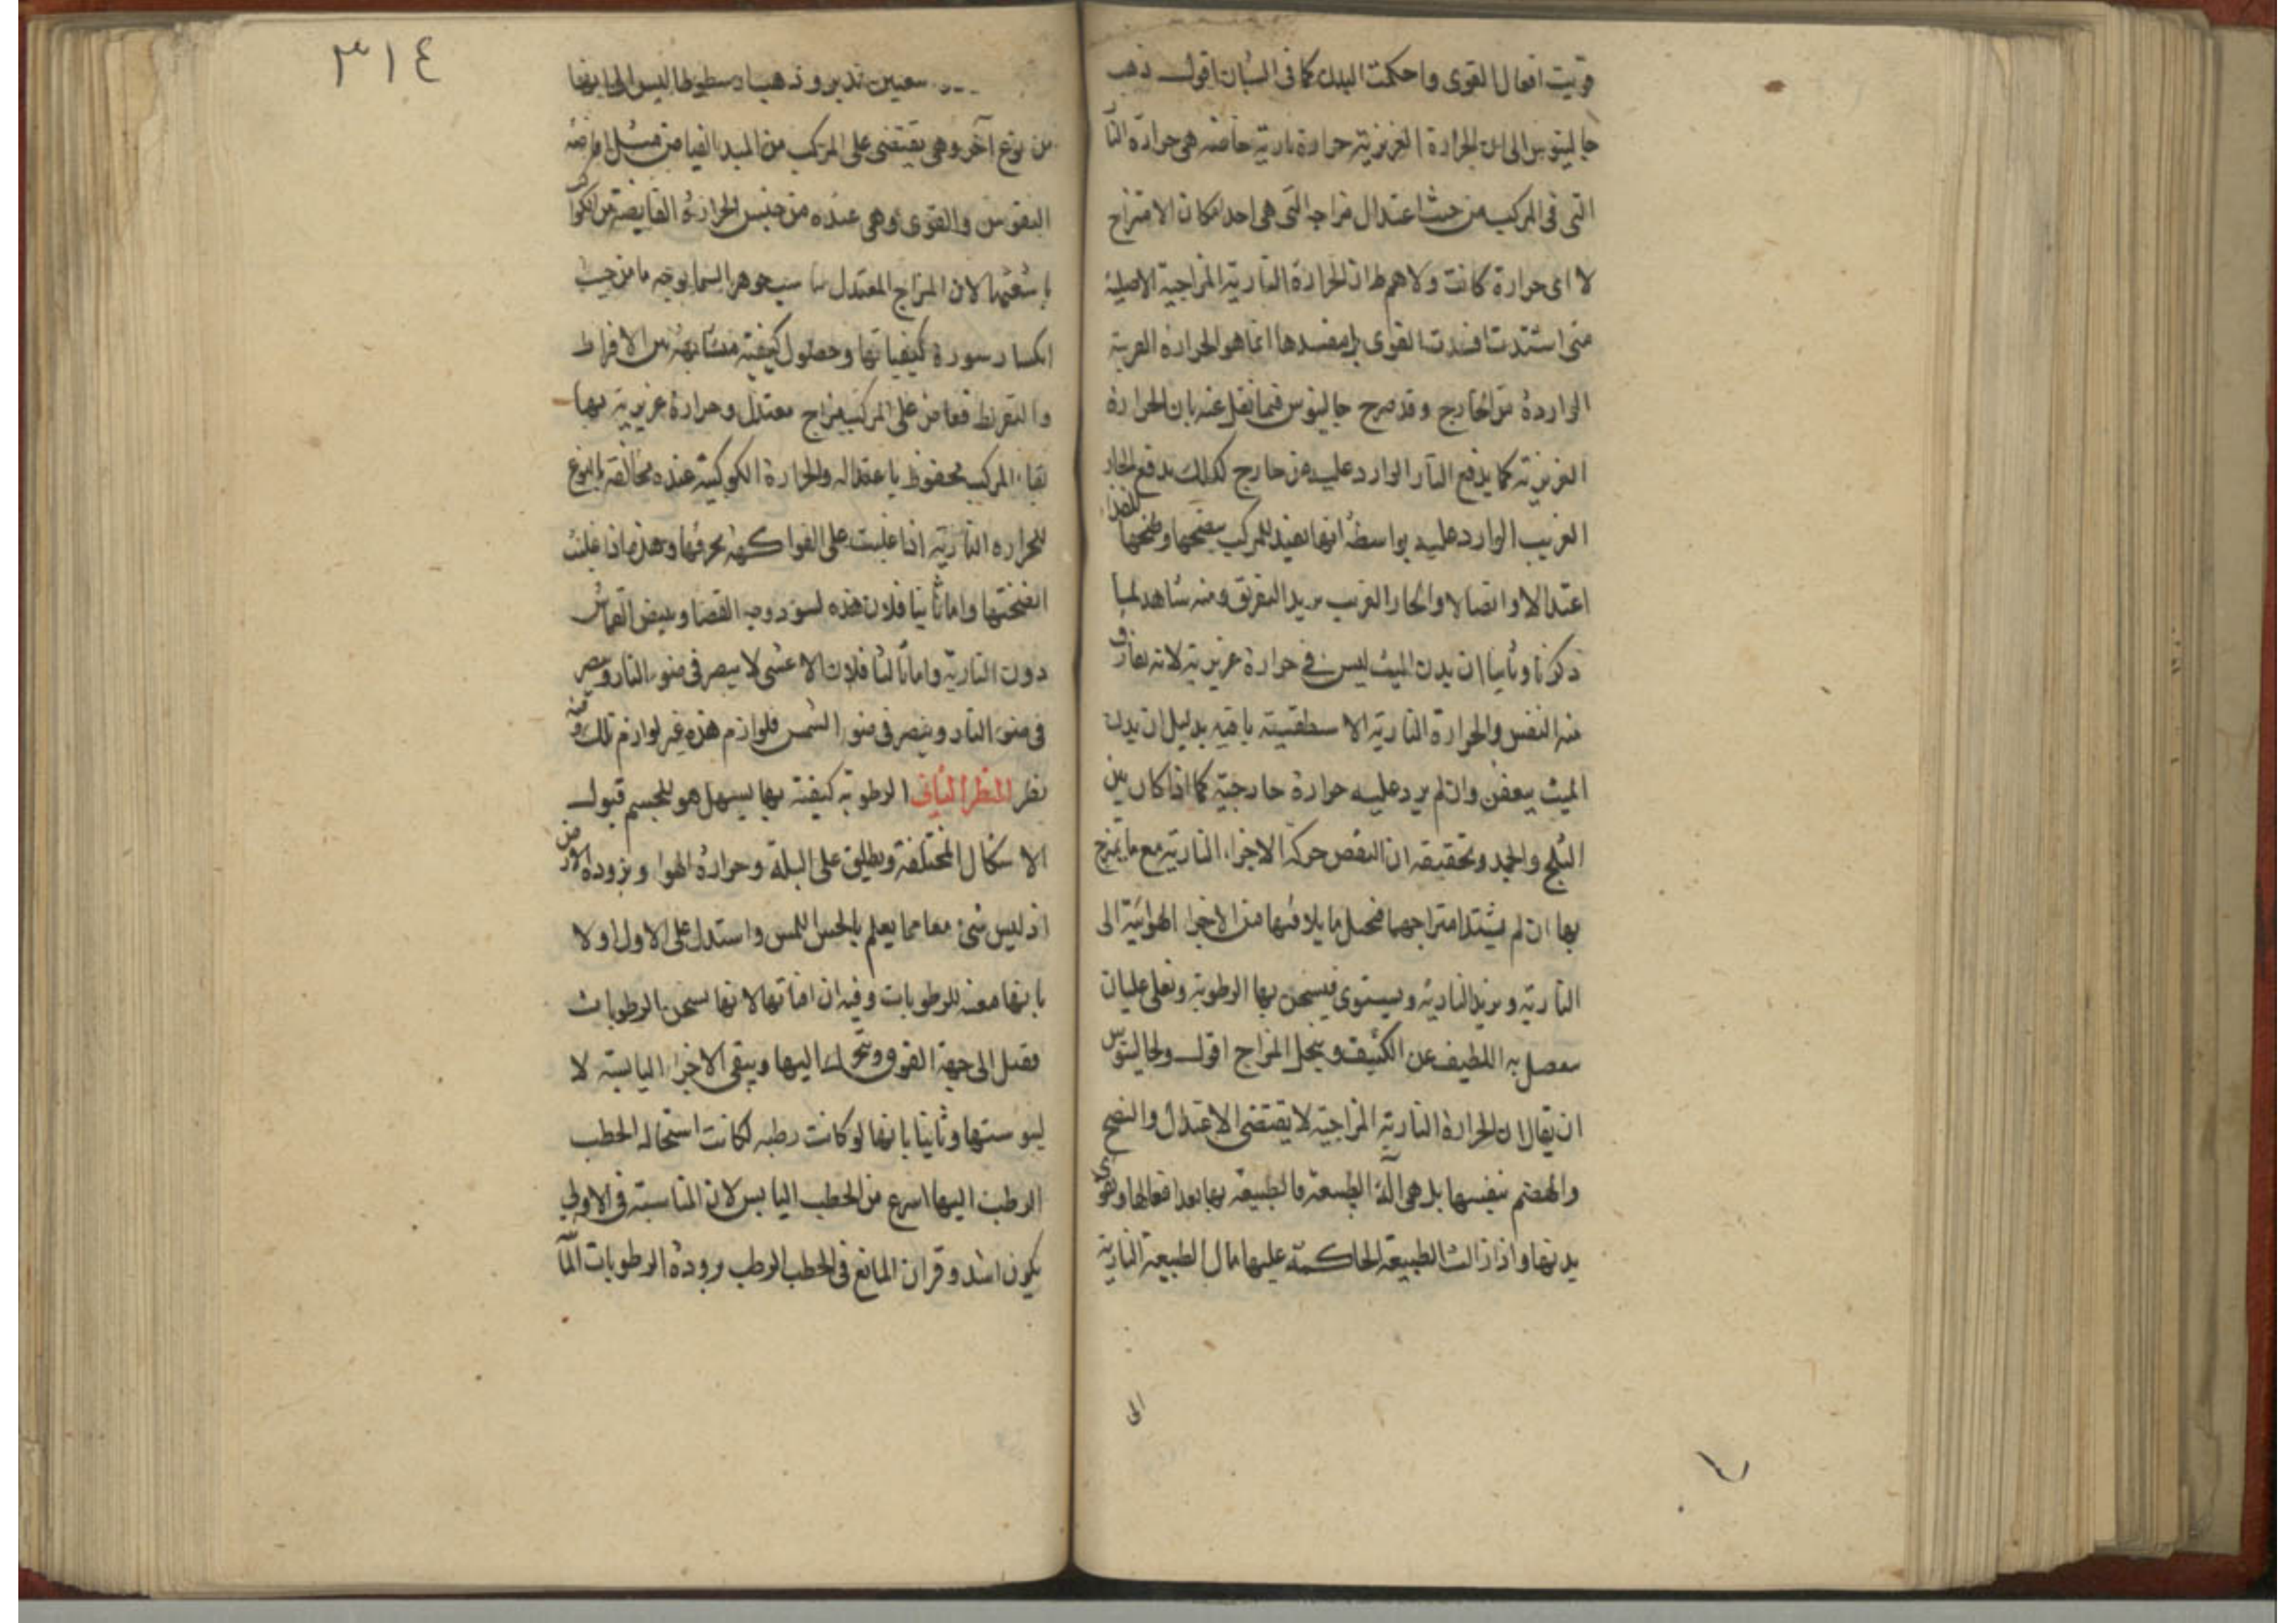 قويت افعال القوى واحكمت البدن كما فى الشبان اقول ذهب
جالينوس الى ان الحرارة الغريزية حرارة نارية خاصة هى حرارة النا
التى فى المركب من حيث اعتدال مزاجه التى هى احد اركان الامتزاج
لا اى حرارة كانت ولاهم ان الحرارة النارية المزاجية الاصلية
متى اشتدت افسدت القوى بل مفسدها انما هو الحرارة الغريبة
الواردة من الخارج وقد صرح جالينوس فيما نقل عنه بان الحرارة
الغريزية كما يدفع البارد الوارد عليه من خارج كذلك يدفع الحار
الغريب الوارد عليه بواسطة انها تفيد للمركب بنضجها وطبخها للغذا
اعتدالا واتصالا والحار الغريب يريد التفريق ومنه شاهد لما
ذكرنا وثانيا ان بدن الميت ليس فى حرارة غريزية لانه تفارق
منه النفس والحرارة النارية الاسطقسية باقية بدليل ان بدن
الميت يتعفن وان لم يرد عليه حرارة خارجية كما اذا كان بين
الثلج والجمد وتحقيقه ان التعفن حركة الاجزاء النارية مع ما يمتزج
بها ان لم يشتد امتزاجها فيحيل ما يلاقيها من الاجزا الهوائية الى
النارية ويزيد النارية ويستوى فيسخن بها الرطوبة وتغلى غليان
ينفصل به اللطيف عن الكثيف وينحل المزاج اقول ولجالينوس
ان يقال ان الحرارة النارية المزاجية لا يقتضى الاعتدال والنضج
والهضم بنفسها بل هى آلة الطبيعة فالطبيعة بها افعالها وتقوى
بدنها واذا زالت الطبيعة الحاكمة عليها مال الطبيعة النارية
الى
٣١٤
سعيين تدبر وذهب ارسطوطاليس الى انها
من نوع آخر وهى يقتضى على المركب من المبدا الفياض مثل افاضة
النفوس والقوى وهى عنده من جنس الحرارة الفايضة من الكواكب
باشعتها لان المزاج المعتدل يناسب جوهر السما بوجه ما من حيث
انكسار سورة كيفياتها وحصول كيفية متشابهة بين الافراط
والتفريط ففاض على المركب مزاج معتدل وحرارة غريزية بها
بقاء المركب محفوظ باعتداله والحرارة الكوكبية عنده مخالفة بالنوع
للحرارة النارية اذا غلبت على الفواكه تحرقها وهذه اذا غلبت
انضجتها واما ثانيا فلان هذه تسود وجه القصار وتبيض القماش
دون النارية واما ثالثا فلان الاعشى لا يبصر فى ضوء النار ويبصر
فى ضوء النار ويبصر فى ضوء الشمس فلوازم هذه غير لوازم تلك وفيه
نظر المنظر الثانى الرطوبة كيفية بها يسهل هو للجسم قبول
الاشكال المختلفة ويطلق على البلة وحرارة الهوا وبرودة الارض
اذ ليس شئ معا مما يعلم بالحس اللمس واستدل على الاول اولا
بانها مفنية للرطوبات وفيه ان افنائها لانها تسخن الرطوبات
فتميل الى جهة الفوق وتتحرك اليها ويبقى الاجزاء اليابسة لا
ليبوستها وثانيا بانها لو كانت رطبة لكانت استحالة الحطب
الرطب اليها اسرع من الحطب اليابس لان المناسبة فى الاولى
يكون اشد وقران المانع فى الحطب الرطب برودة الرطوبات الما